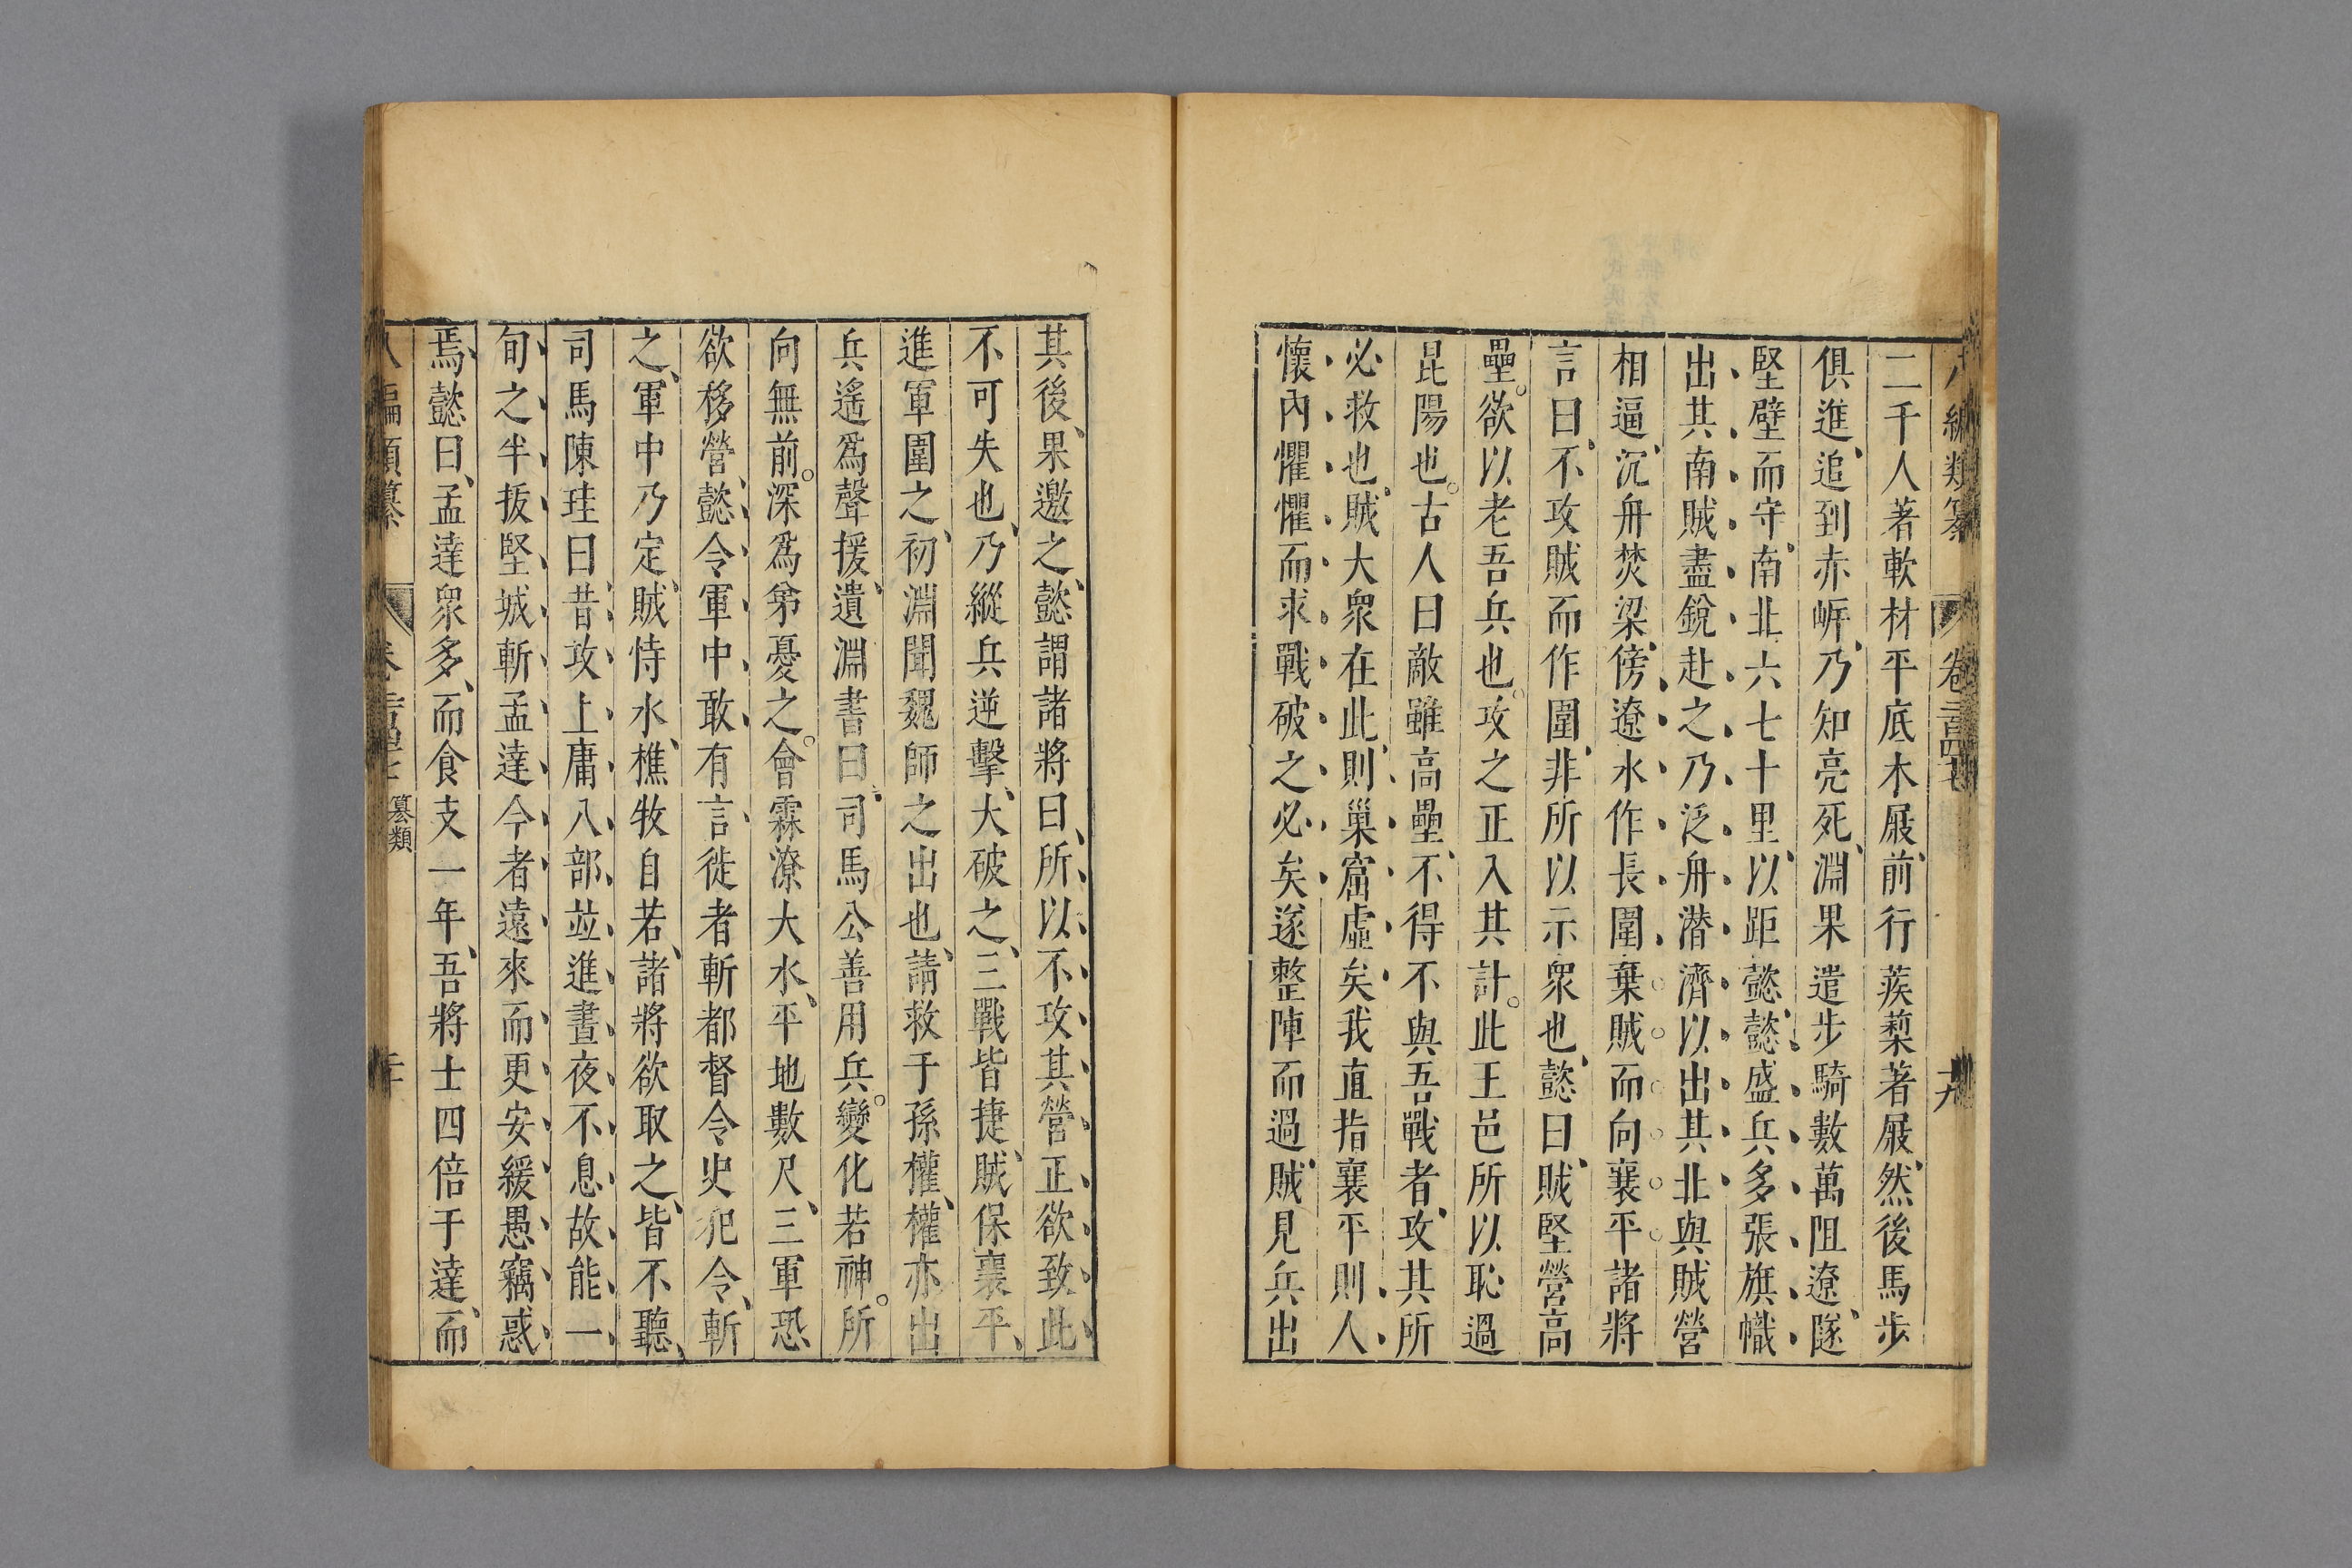 二千人著軟材平底木屐前行蒺藜著屐然後馬步
俱進追到赤岸乃知亮死淵果遣步騎數萬阻遼隧
堅壁而守南北六七十里以距懿懿盛兵多張旗幟
出其南賊盡銳赴之乃泛舟潛濟以出其北與賊營
相逼沉舟焚梁傍遼水作長圍棄賊而向襄平諸將
言曰不攻賊而作圍非所以示衆也懿曰賊堅營高
壘欲以老吾兵也攻之正入其計此王邑所以恥過
昆陽也古人曰敵雖高壘不得不與吾戰者攻其所
必救也賊大衆在此則巢窟虛矣我直指襄平則人
懷內懼懼而求戰破之必矣遂整陣而過賊見兵出
其後果邀之懿謂諸將曰所以不攻其營正欲致此
不可失也乃縱兵逆擊大破之三戰皆捷賊保襄平
進軍圍之初淵聞魏師之出也請救于孫權權亦出
兵遙爲聲援遺淵書曰司馬公善用兵變化若神所
向無前深爲弟憂之會霖潦大水平地數尺三軍恐
欲移營懿令軍中敢有言徙者斬都督令史犯令斬
之軍中乃定賊恃水樵牧自若諸將欲取之皆不聽
司馬陳珪曰昔攻上庸八部並進晝夜不息故能一
旬之半拔堅城斬孟達今者遠來而更安緩愚竊惑
焉懿曰孟達衆多而食支一年吾將士四倍于達而
纂類